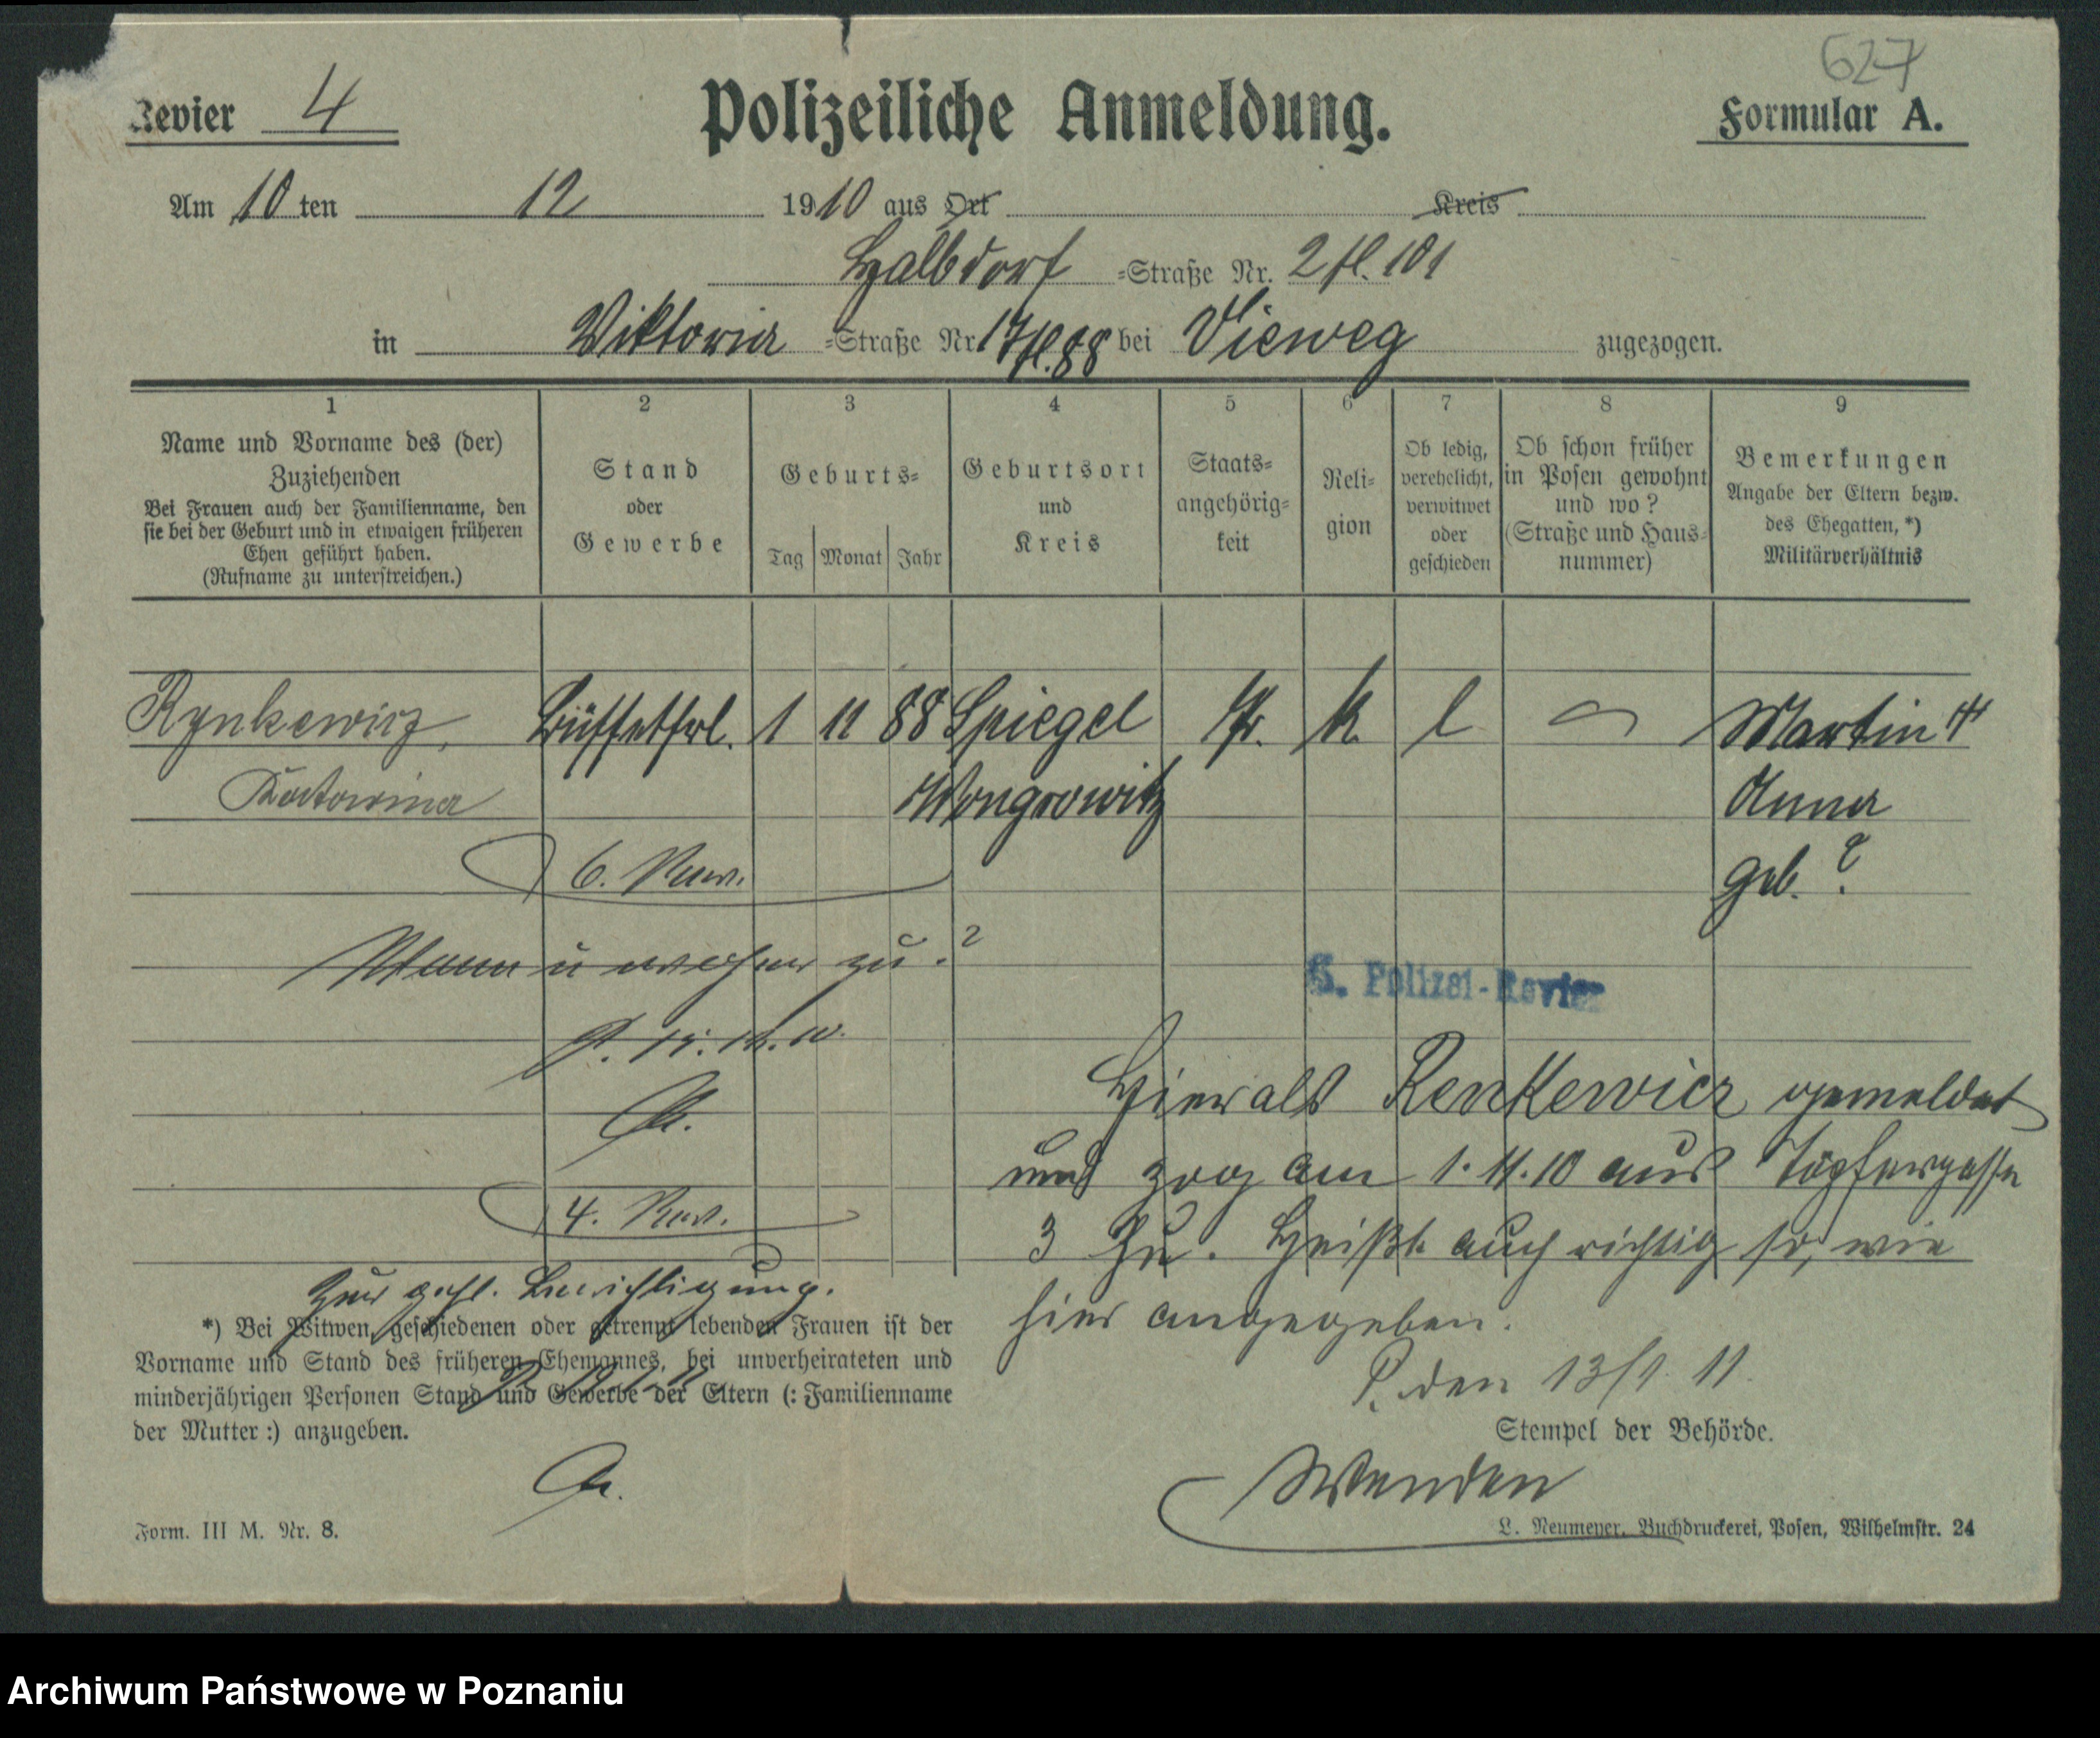 627
Revier 4
Polizeiliche Anmeldung.
Formular A.
Am 10 ten 12 1910 aus Ort Kreis
Halbdorf =Straße Nr. 2 fl. 101
in Viktoria =Straße Nr 17 fl. 88 bei Vieweg zugezogen.
1 2 3 4 5 6 7 8 9
Name und Vorname des (der)
Zuziehenden
Bei Frauen auch der Familienname, den
sie bei der Geburt und in etwaigen früheren
Ehen geführt haben.
(Rufname zu unterstreichen.)
Stand
oder
Gewerbe
Geburts=
Tag Monat Jahr
Geburtsort
und
Kreis
Staats=
angehörig=
keit
Reli=
gion
Ob ledig,
verehelicht,
verwitwet
oder
geschieden
Ob schon früher
in Posen gewohnt
und wo?
(Straße und Haus=
nummer)
Bemerkungen
Angabe der Eltern bezw.
des Ehegatten, *)
Militärverhältnis
Rynkewicz, Büffetfrl. 1 11 88 Spiegel Pr. k. l Martin
Katarina Wongrowitz Anna
6. Rev. geb. ?
Wann u woher zu. ?
6. Polizei-Revier
P. 15. 12. 10.
Hier als Renkewicz gemeldet
und zog am 1.11.10 aus Töpfergasse
4. Rev.
3 zu. Heißt auch richtig so, wie
Zur gefl. Berichtigung.
hier angegeben.
P. den 13/1. 11.
*) Bei Witwen, geschiedenen oder getrennt lebenden Frauen ist der
Vorname und Stand des früheren Ehemannes, bei unverheirateten und
minderjährigen Personen Stand und Gewerbe der Eltern (: Familienname
der Mutter :) anzugeben.
Stempel der Behörde.
Form. III M. Nr. 8.
L. Neumeyer, Buchdruckerei, Posen, Wilhelmstr. 24
Archiwum Państwowe w Poznaniu